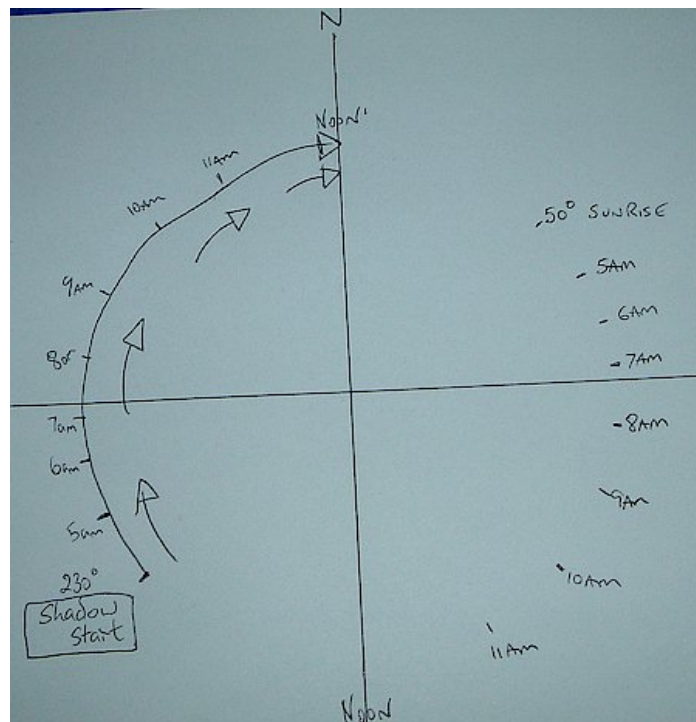 N
NOON'
11AM
10AM
9AM
7am
6am
5am
230°
Shadow
Start
50° SUNRISE
5AM
6AM
7AM
8AM
9AM
10AM
11AM
NOON